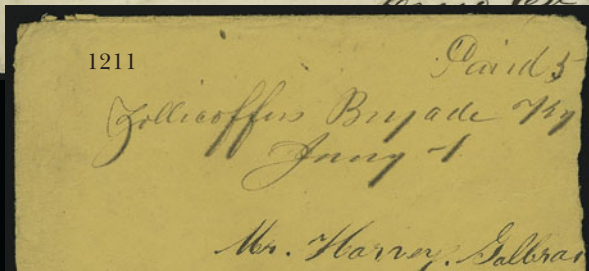 1211
Paid 5
Zollicoffers Brigade Ky
Jany 1
Mr. Harvey. Galbrai